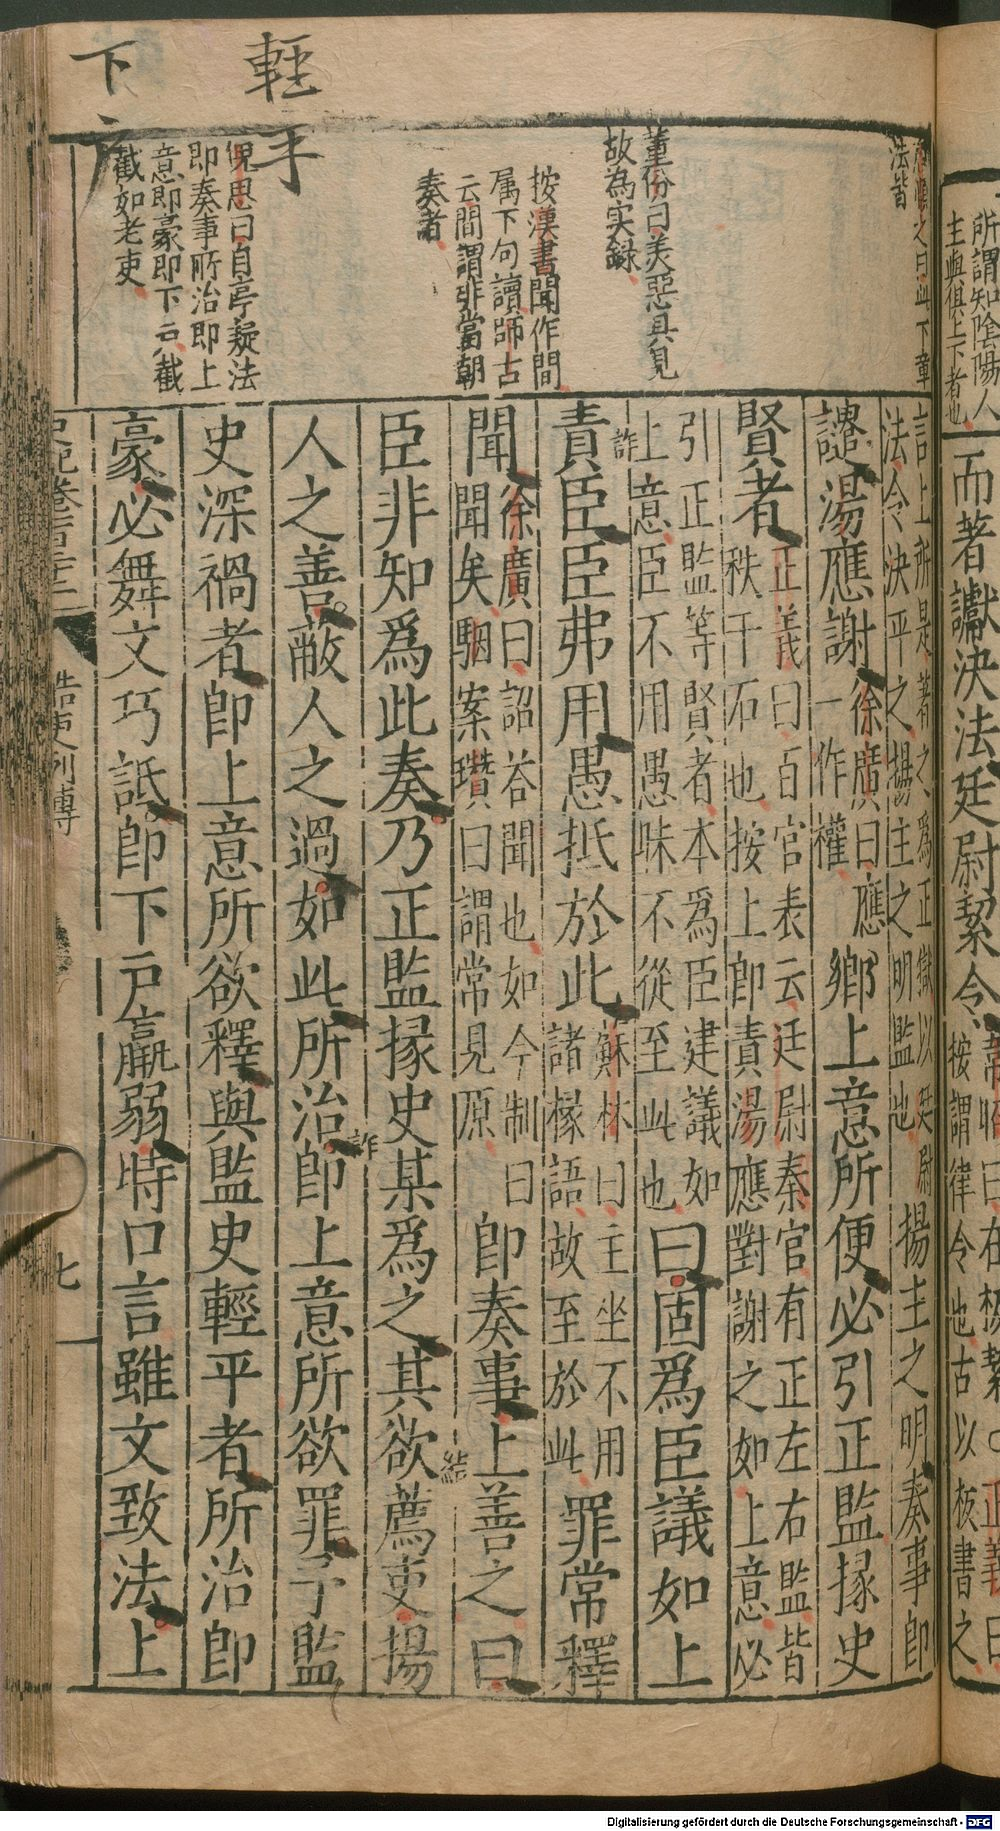 所謂知陰陽人
主與俱上下者也
而著讞決法廷尉絜令
按謂律令也古以板書之
法皆
言上所是著之為正獄以廷尉
法令決平之揚主之明監也
揚主之明奏事即
譴湯應謝
徐廣曰應
一作權
鄉上意所便必引正監掾史
賢者
正義曰百官表云廷尉秦官有正左右監皆
秩千石也按上即責湯應對謝之如上意必
引正監等賢者本為臣建議如
上意臣不用愚昧不從至此也
曰固為臣議如上
責臣臣弗用愚抵於此
蘇林曰主坐不用
諸掾語故至於此
罪常釋
聞
徐廣曰詔荅聞也如今制曰
聞矣駰案瓚曰謂常見原
即奏事上善之曰
臣非知為此奏乃正監掾史某為之其欲薦吏揚
人之善蔽人之過如此所治即上意所欲罪予監
史深禍者即上意所欲釋與監史輕平者所治即
豪必舞文巧詆即下戶羸弱時口言雖文致法上
董份曰美惡具見
故為实録
按漢書聞作間
属下句讀師古
云間謂非當朝
奏者
倪思曰自亭疑法
即奏事所治即上
意即豪即下云截
截如老吏
輕
手
下
戶
詐
詐
結
酷吏列傳
七
Digitalisierung gefördert durch die Deutsche Forschungsgemeinschaft - DFG